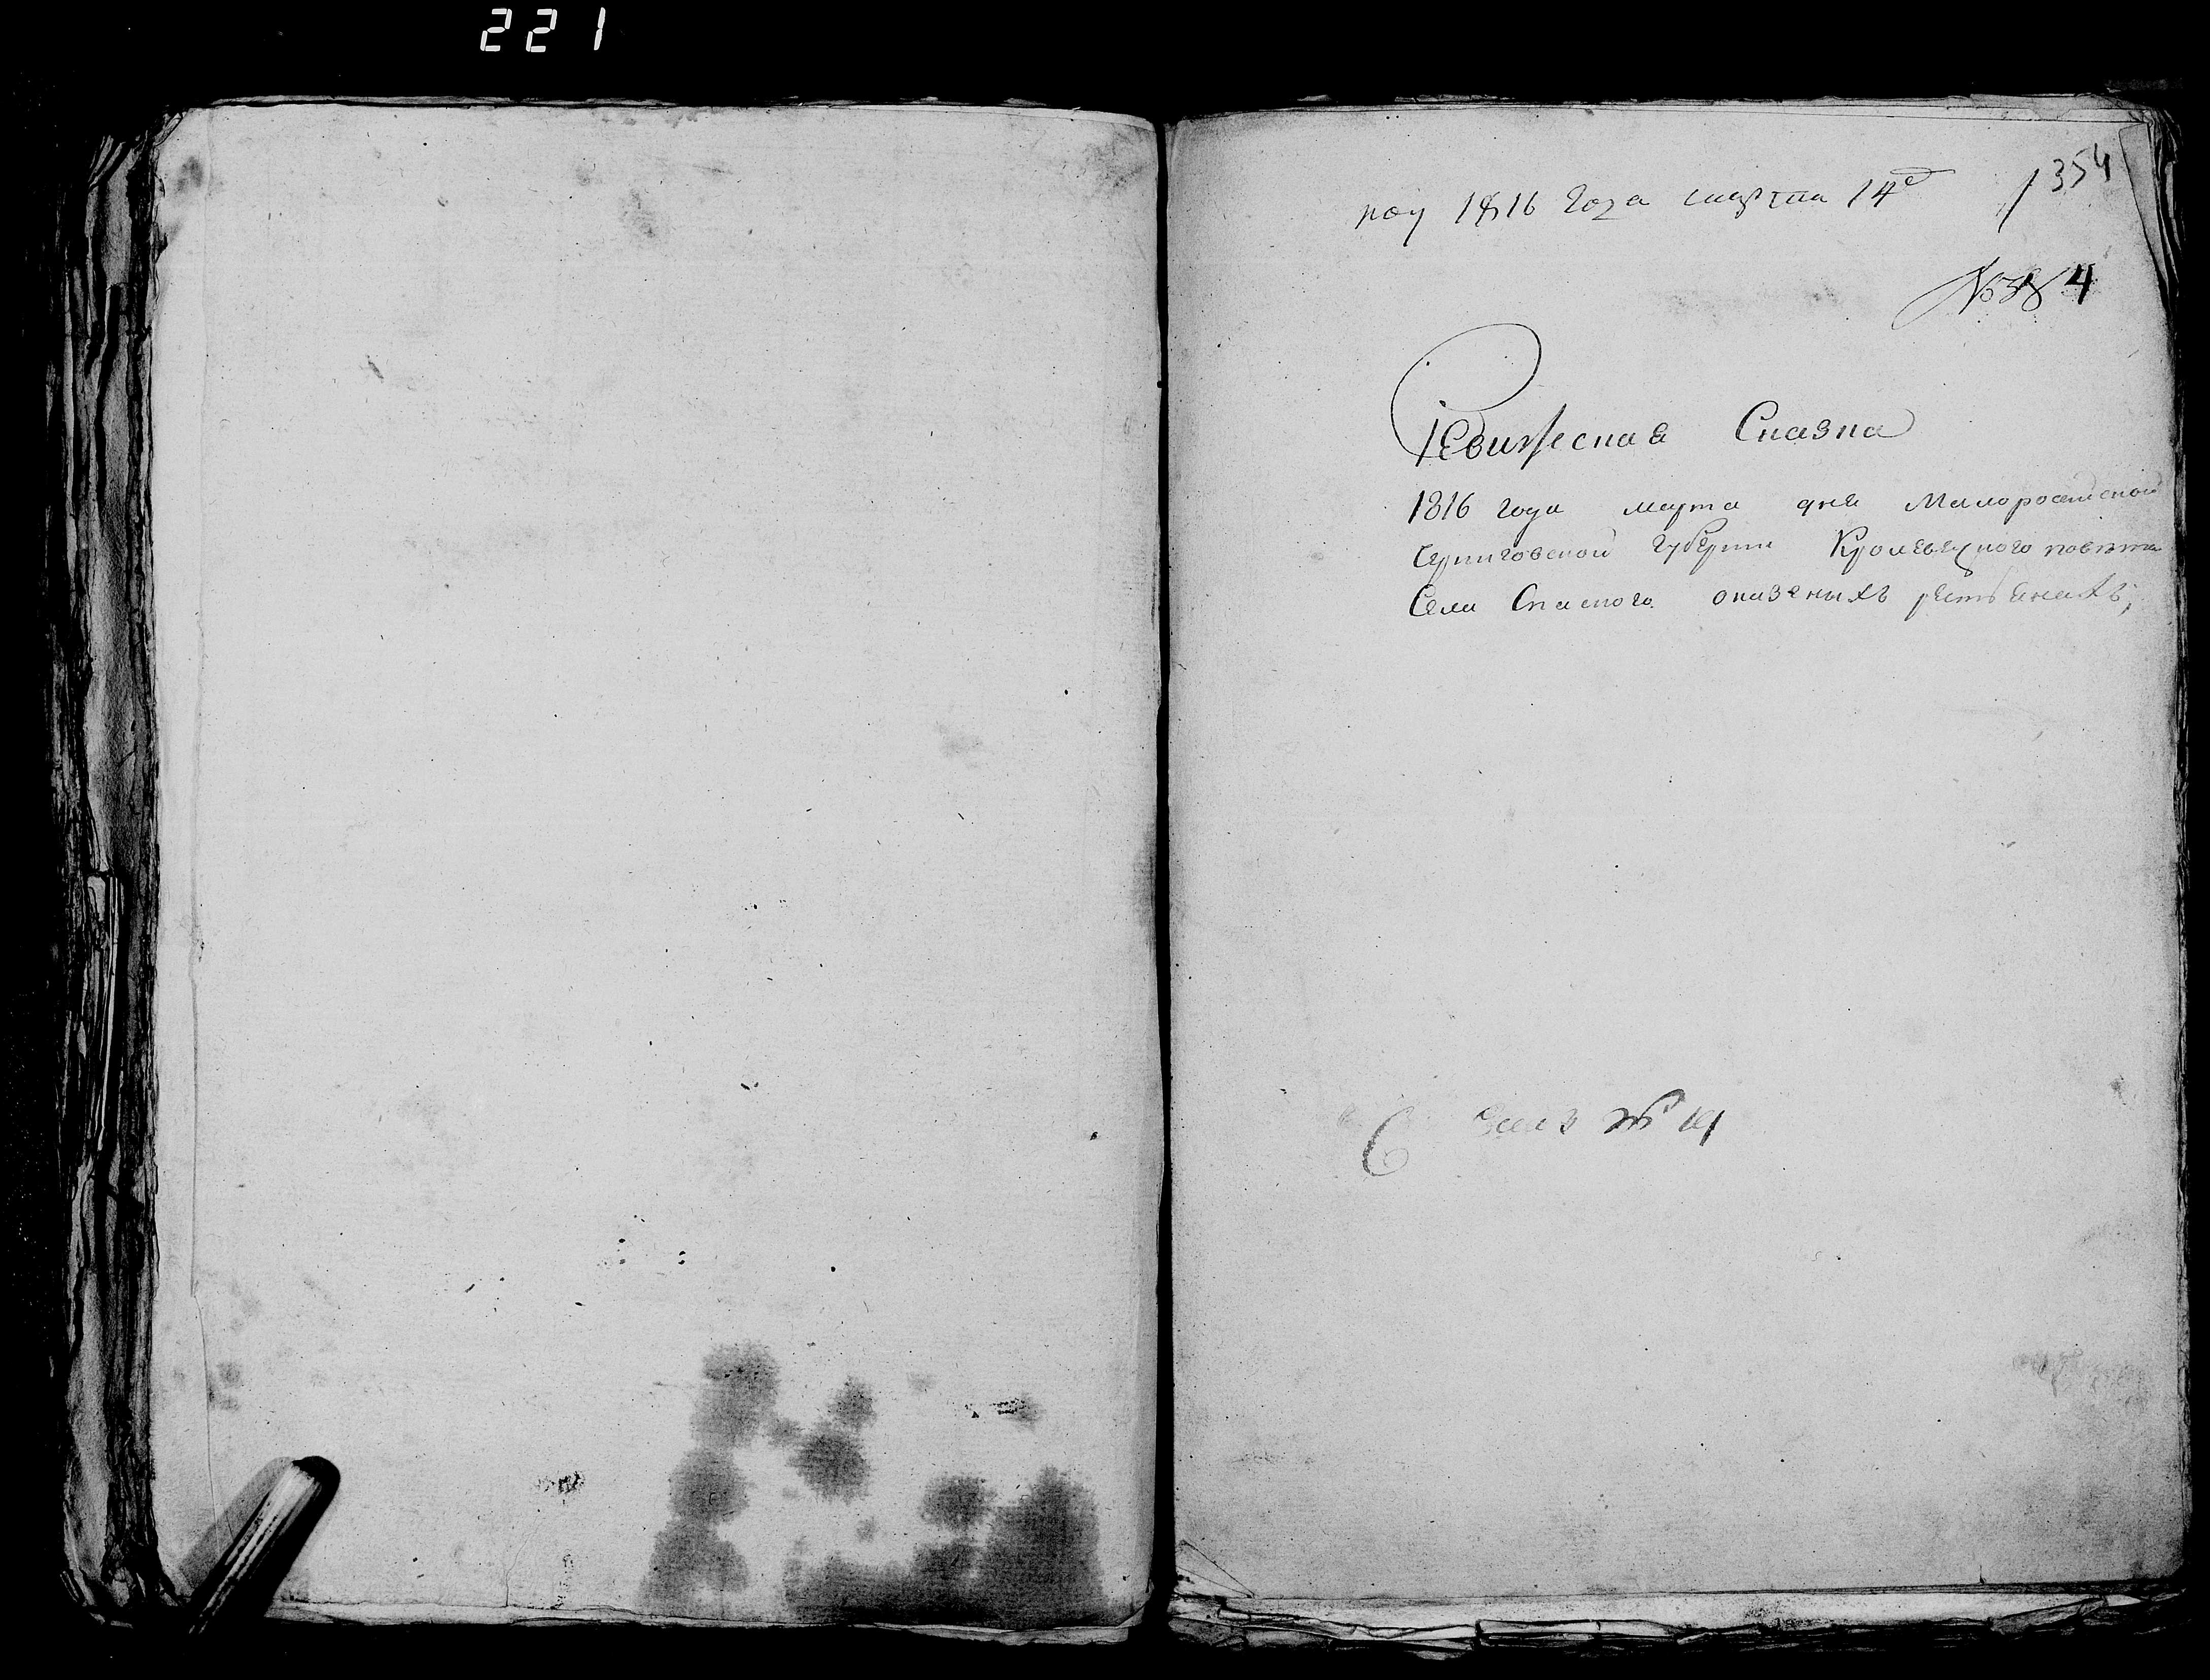 221
пол 1816 года марта 14е 1 354
№ 38 4
Ревижеская Сказка
1816 года марта дня Малоросийской
Черниговской губернии Кролевецкого повета
Села Спаского оказеныхъ
№